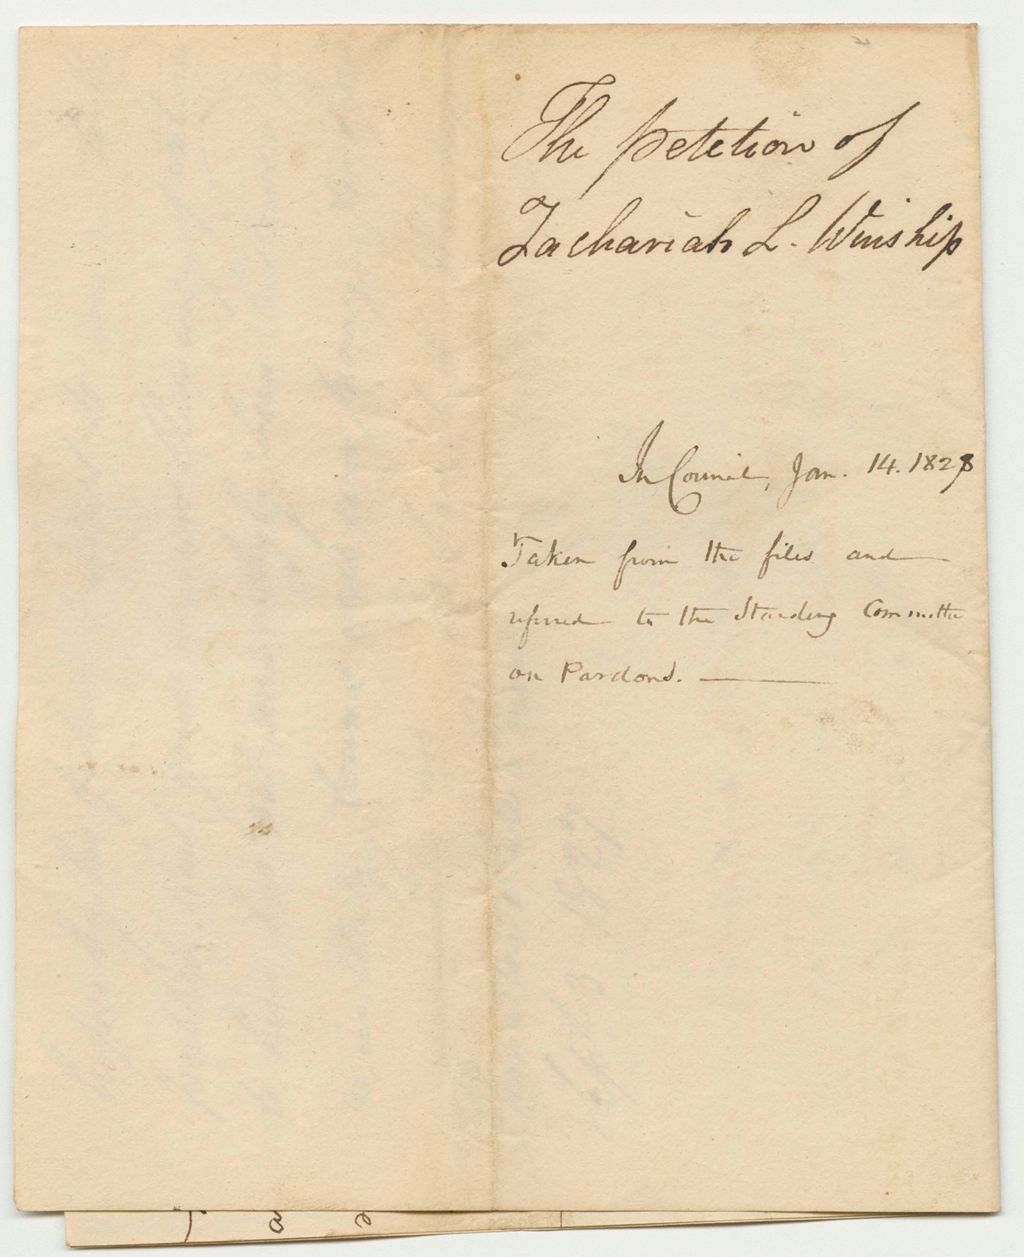 The petetion of
Zachariah L. Winship
In Council, Jan. 14. 1828
Taken from the files and
referred to the Standing Committee
on Pardons.